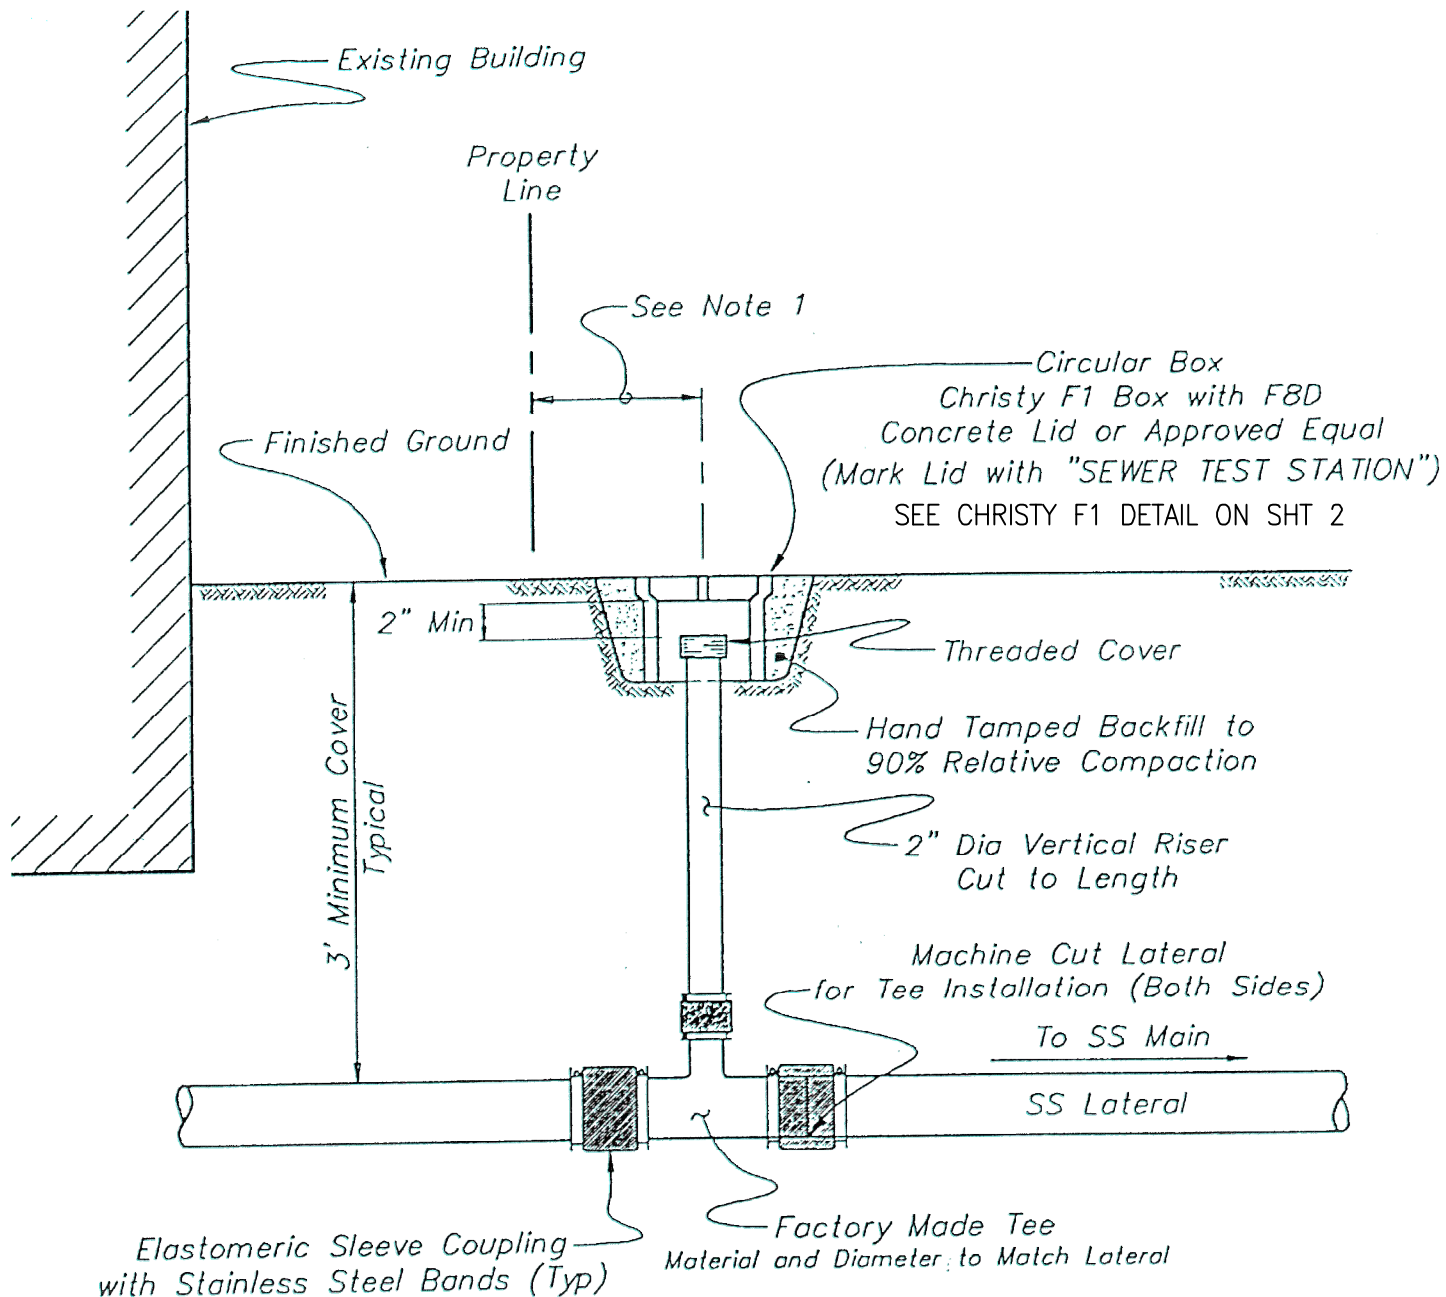 Existing Building
Property
Line
See Note 1
Circular Box
Christy F1 Box with F8D
Concrete Lid or Approved Equal
(Mark Lid with "SEWER TEST STATION")
SEE CHRISTY F1 DETAIL ON SHT 2
Finished Ground
2" Min
Threaded Cover
Hand Tamped Backfill to
90% Relative Compaction
3' Minimum Cover
Typical
2" Dia Vertical Riser
Cut to Length
Machine Cut Lateral
for Tee Installation (Both Sides)
To SS Main
SS Lateral
Factory Made Tee
Material and Diameter to Match Lateral
Elastomeric Sleeve Coupling
with Stainless Steel Bands (Typ)